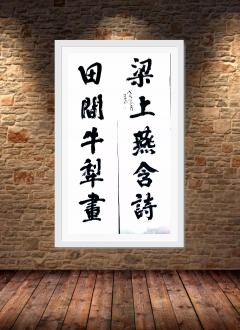 梁上燕含詩
田間牛犁畫